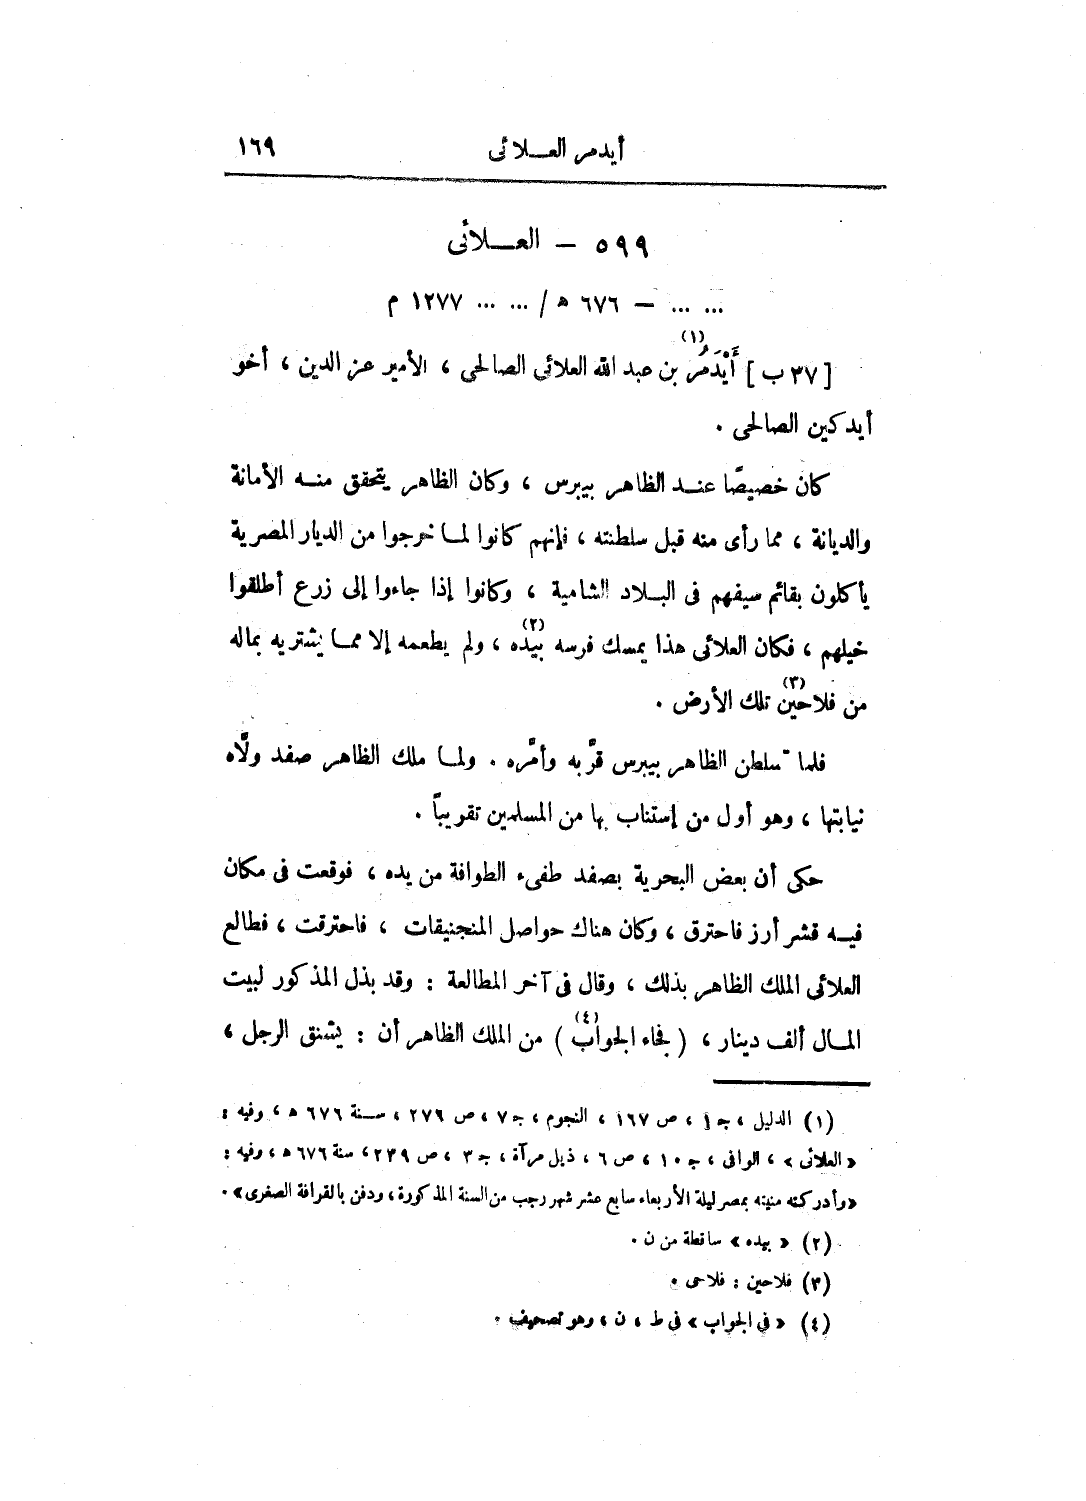 أيدمر العـــلائى ١٦٩
٥٩٩ – العـــلائى
... ... – ٦٧٦ ه / ... ... ١٢٧٧ م
[ ٣٧ ب ] أَيْدَمُر(١) بن عبد الله العلائى الصالحى ، الأمير عز الدين ، أخو
أيدكين الصالحى .
كان خصيصًا عنــد الظاهر بيبرس ، وكان الظاهر يتحقق منــه الأمانة
والديانة ، مما رأى منه قبل سلطنته ، فإنهم كانوا لمــا خرجوا من الديار المصرية
يأكلون بقائم سيفهم فى البــلاد الشامية ، وكانوا إذا جاءوا إلى زرع أطلقوا
خيلهم ، فكان العلائى هذا يمسك فرسه بيده(٢) ، ولم يطعمه إلا ممــا يشتريه بماله
من فلاحين(٣) تلك الأرض .
فلما تسلطن الظاهر بيبرس قرّبه وأمّره . ولمــا ملك الظاهر صفد ولّاه
نيابتها ، وهو أول من إستناب بها من المسلمين تقريباً .
حكى أن بعض البحرية بصفد طفىء الطوافة من يده ، فوقعت فى مكان
فيــه قشر أرز فاحترق ، وكان هناك حواصل المنجنيقات ، فاحترقت ، فطالع
العلائى الملك الظاهر بذلك ، وقال فى آخر المطالعة : وقد بذل المذكور لبيت
المــال ألف دينار ، ( فجاء الجواب(٤) ) من الملك الظاهر أن : يشنق الرجل ،
(١) الدليل ، ج١ ، ص ١٦٧ ، النجوم ، ج ٧ ، ص ٢٧٦ ، ســنة ٦٧٦ ه ، وفيه :
« العلائى » ، الوافى ، ج ١٠ ، ص ٦ ، ذيل مرآة ، ج ٣ ، ص ٢٣٩ ، سنة ٦٧٦ ه ، وفيه :
« وأدركته منيته بمصر ليلة الأربعاء سابع عشر شهر رجب من السنة المذكورة ، ودفن بالقرافة الصغرى » .
(٢) « بيده » ساقطة من ن .
(٣) فلاحين : فلاحى .
(٤) « فى الجواب » فى ط ، ن ، وهو تصحيف .